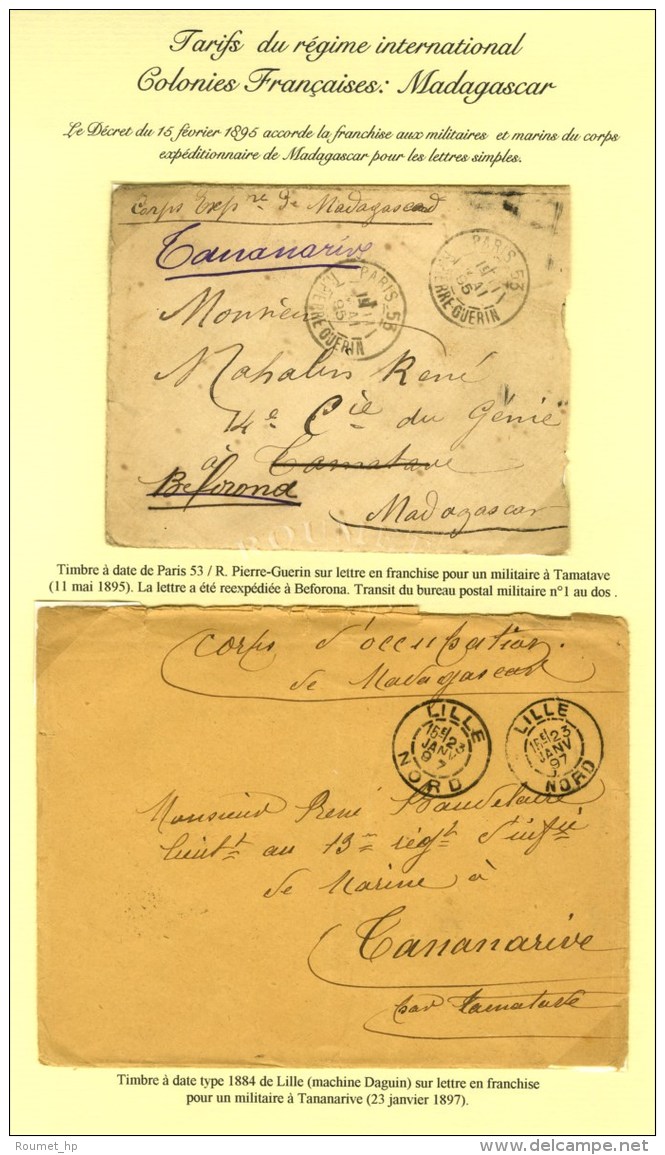 Tarifs du régime international
Colonies Françaises: Madagascar
Le Décret du 15 février 1895 accorde la franchise aux militaires et marins du corps
expéditionnaire de Madagascar pour les lettres simples.
Corps Expre de Madagascar
Tananarive
PARIS_53
R. PIERRE-GUERIN
11
MAI
95
PARIS_53
R. PIERRE-GUERIN
11
MAI
95
Monsieur
Mahalin René
14e Cie du Génie
à Tamatave
Beforona
Madagascar
ROUMET
Timbre à date de Paris 53 / R. Pierre-Guerin sur lettre en franchise pour un militaire à Tamatave
(11 mai 1895). La lettre a été reexpédiée à Beforona. Transit du bureau postal militaire n°1 au dos .
Corps d'occupation
de Madagascar
LILLE
15E/23
JANV
97
NORD
LILLE
15E/23
JANV
97
NORD
Monsieur René Baudelaire
lieutt au 13me régt d'infie
de Marine à
Tananarive
par Tamatave
Timbre à date type 1884 de Lille (machine Daguin) sur lettre en franchise
pour un militaire à Tananarive (23 janvier 1897).
Roumet_hp
delcampe.net